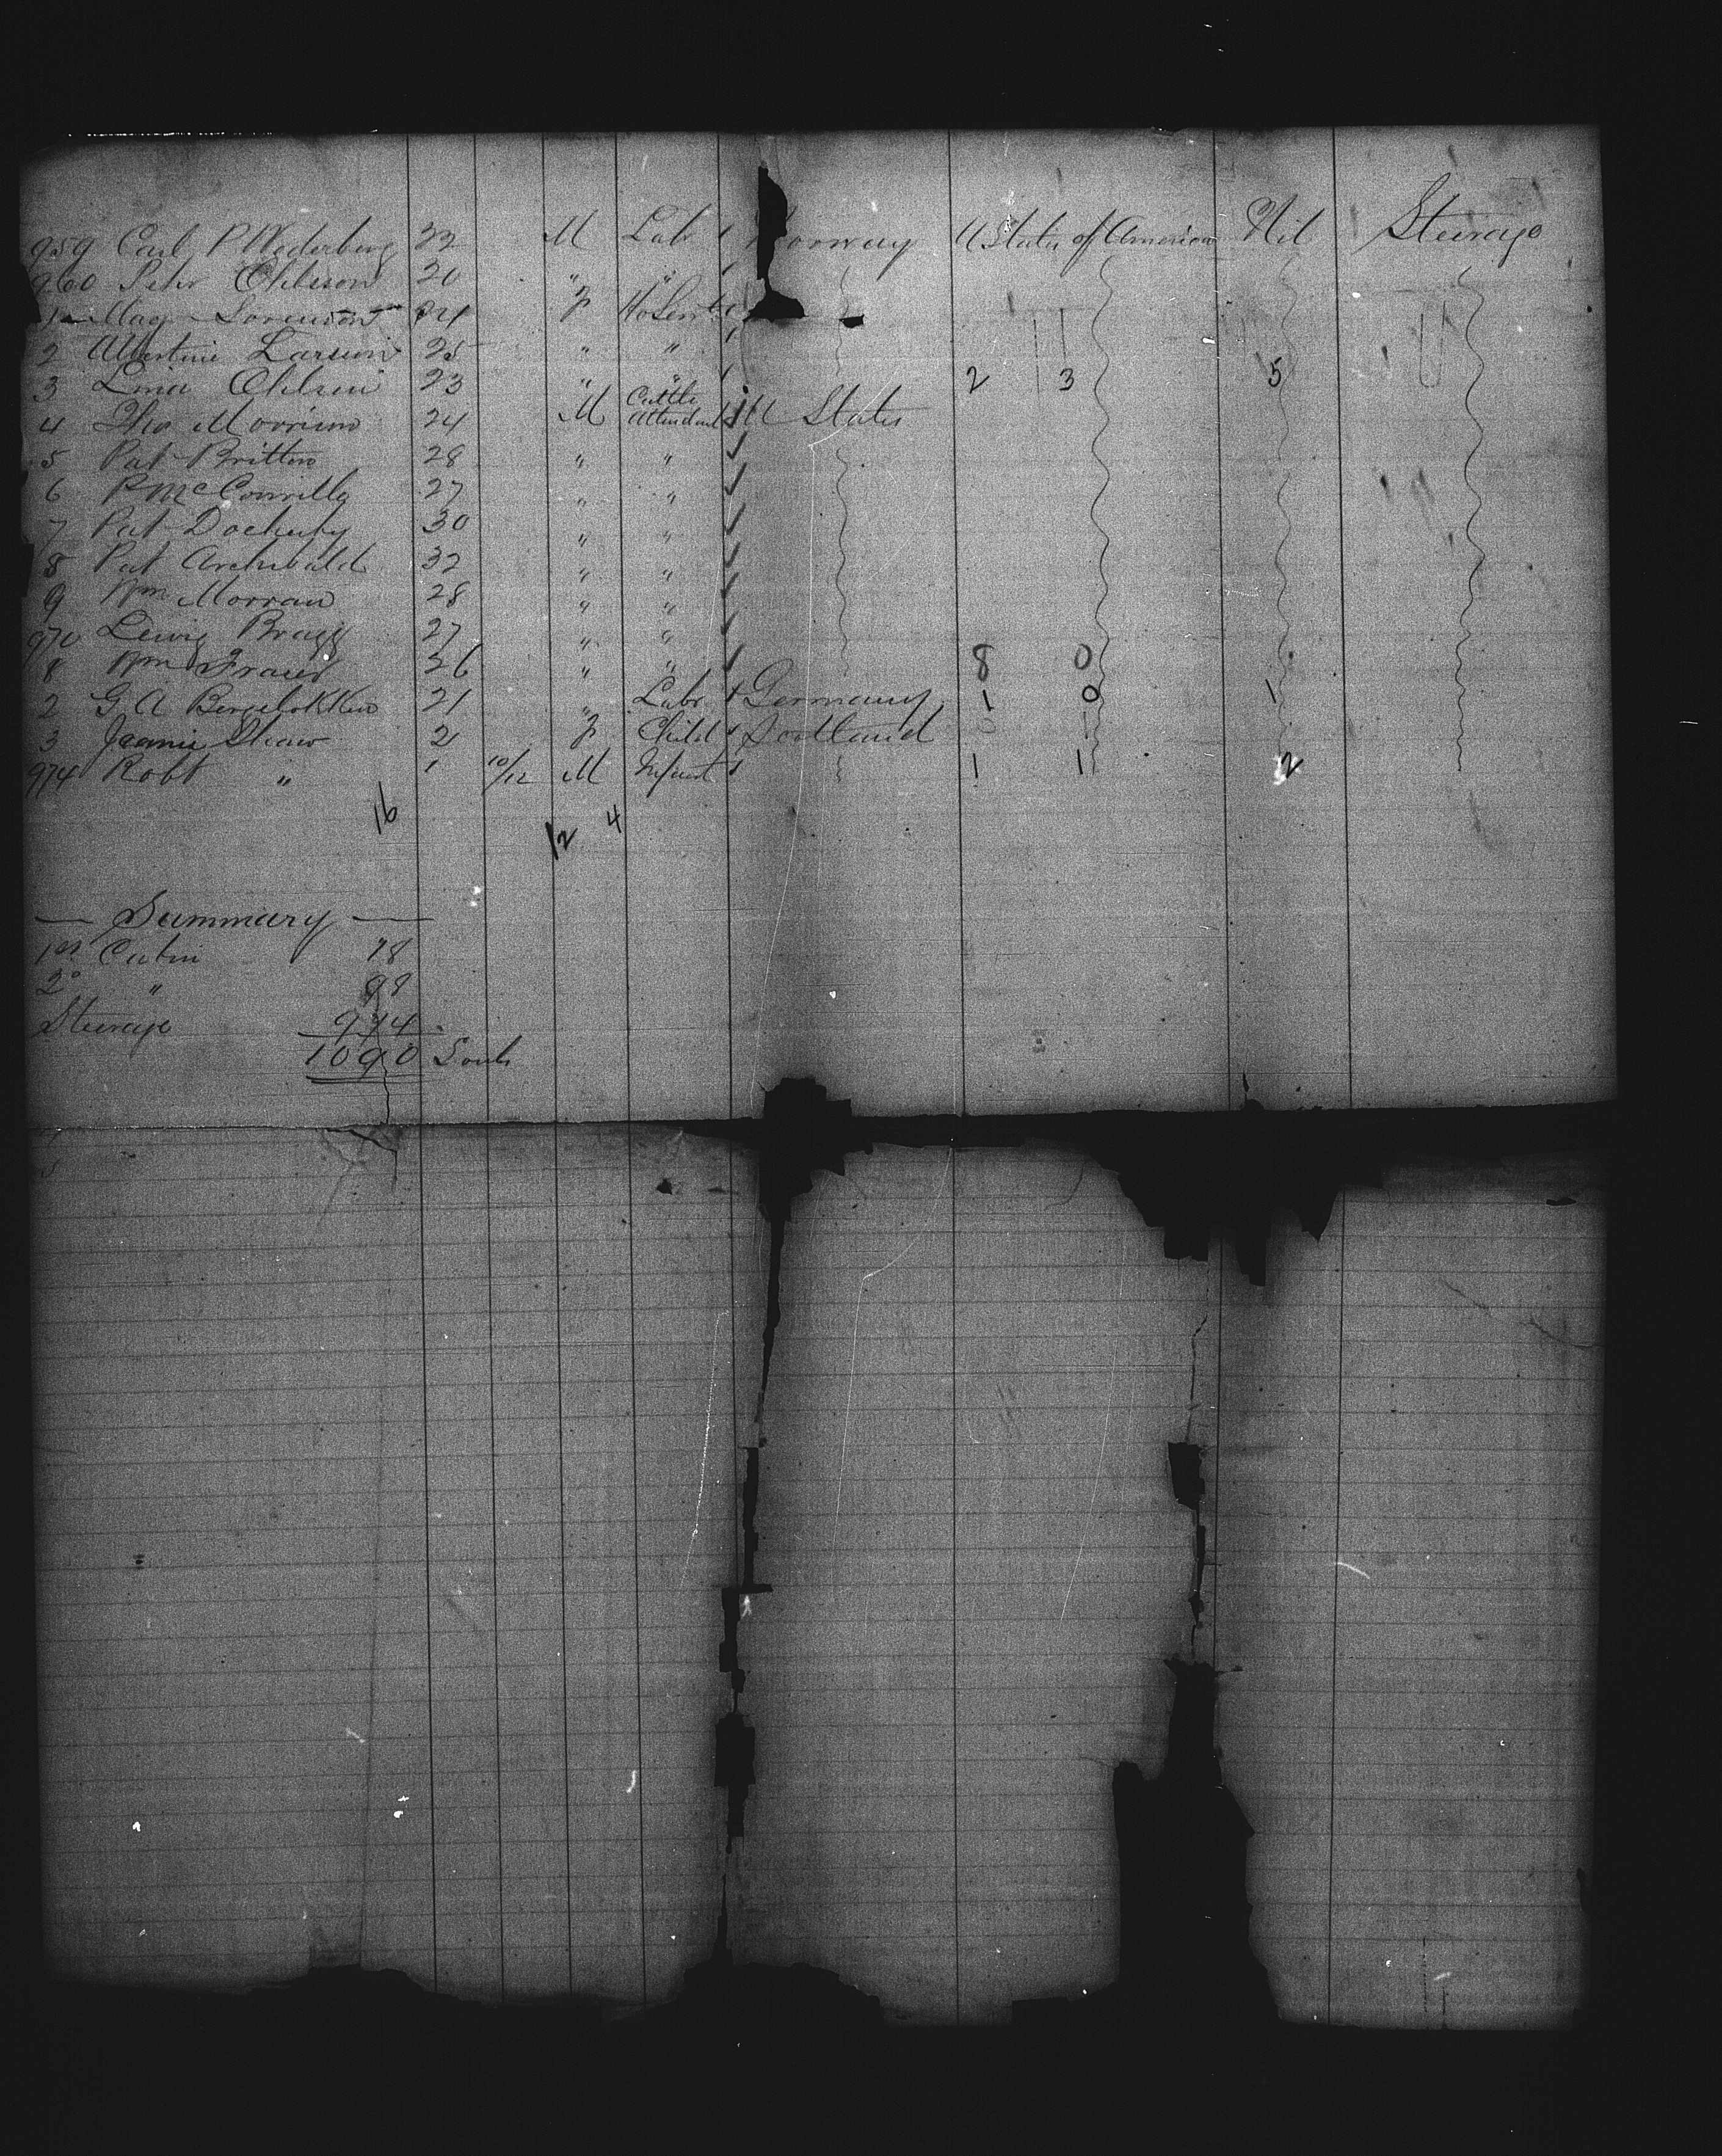 959 Carl P Wederberg 22 M Labr Norway U States of America Nil Steerage
960 Pehr Ohlsson 20 " "
1 Mag Sorenson 24 F Ho Servt
2 Albertine Larsen 25 " "
3 23 " " 2 3 5
4 Thos Morrison 24 M Cattle Attendant U States
5 Pat Britton 28 " "
6 P McConville 27 " "
7 Pat Docherty 30 " "
8 Pat Archibald 32 " "
9 Wm Morran 28 " "
970 Lewis Bragg 27 " "
Wm Fraser 26 " " 8 0
2 G A 21 " Labr Germany 1 0 1
3 Jeanie Shaw 2 F Child Scotland
974 Robt " 1 10/12 M Infant 1 1 2
16 12 4
— Summary —
1st Cabin 18
2° " 98
Steerage 974
1090 Souls